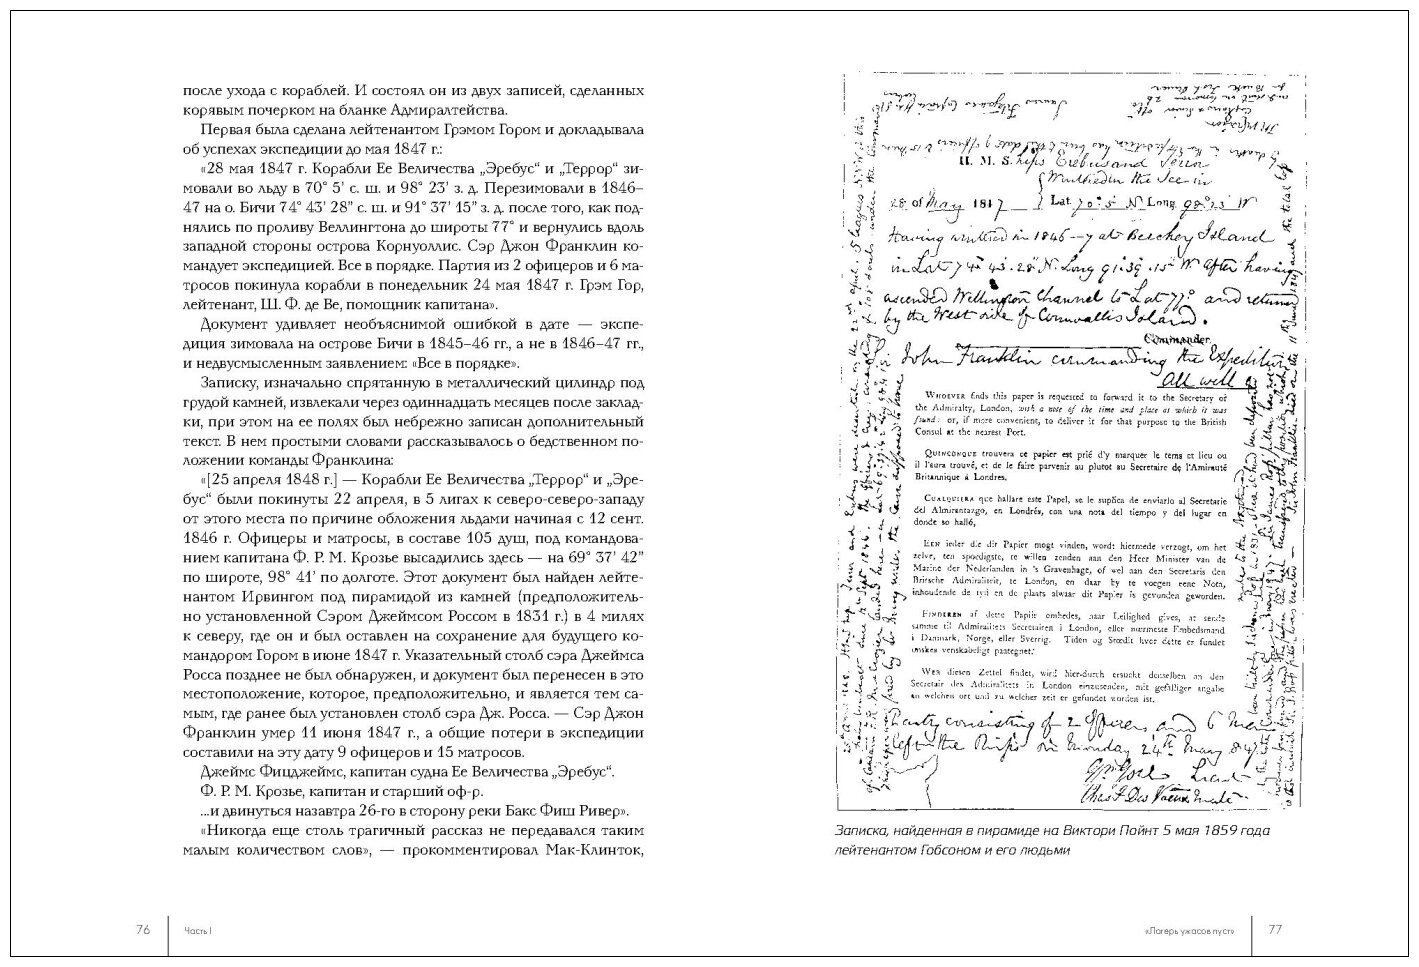 после ухода с кораблей. И состоял он из двух записей, сделанных
корявым почерком на бланке Адмиралтейства.
Первая была сделана лейтенантом Грэмом Гором и докладывала
об успехах экспедиции до мая 1847 г.:
«28 мая 1847 г. Корабли Ее Величества „Эребус“ и „Террор“ зи-
мовали во льду в 70° 5’ с. ш. и 98° 23’ з. д. Перезимовали в 1846–
47 на о. Бичи 74° 43’ 28” с. ш. и 91° 37’ 15” з. д. после того, как под-
нялись по проливу Веллингтона до широты 77° и вернулись вдоль
западной стороны острова Корнуоллис. Сэр Джон Франклин ко-
мандует экспедицией. Все в порядке. Партия из 2 офицеров и 6 ма-
тросов покинула корабли в понедельник 24 мая 1847 г. Грэм Гор,
лейтенант, Ш. Ф. де Ве, помощник капитана».
Документ удивляет необъяснимой ошибкой в дате — экспе-
диция зимовала на острове Бичи в 1845–46 гг., а не в 1846–47 гг.,
и недвусмысленным заявлением: «Все в порядке».
Записку, изначально спрятанную в металлический цилиндр под
грудой камней, извлекали через одиннадцать месяцев после заклад-
ки, при этом на ее полях был небрежно записан дополнительный
текст. В нем простыми словами рассказывалось о бедственном по-
ложении команды Франклина:
«[25 апреля 1848 г.] — Корабли Ее Величества „Террор“ и „Эре-
бус“ были покинуты 22 апреля, в 5 лигах к северо-северо-западу
от этого места по причине обложения льдами начиная с 12 сент.
1846 г. Офицеры и матросы, в составе 105 душ, под командова-
нием капитана Ф. Р. М. Крозье высадились здесь — на 69° 37’ 42”
по широте, 98° 41’ по долготе. Этот документ был найден лейте-
нантом Ирвингом под пирамидой из камней (предположитель-
но установленной Сэром Джеймсом Россом в 1831 г.) в 4 милях
к северу, где он и был оставлен на сохранение для будущего ко-
мандором Гором в июне 1847 г. Указательный столб сэра Джеймса
Росса позднее не был обнаружен, и документ был перенесен в это
местоположение, которое, предположительно, и является тем са-
мым, где ранее был установлен столб сэра Дж. Росса. — Сэр Джон
Франклин умер 11 июня 1847 г., а общие потери в экспедиции
составили на эту дату 9 офицеров и 15 матросов.
Джеймс Фицджеймс, капитан судна Ее Величества „Эребус“.
Ф. Р. М. Крозье, капитан и старший оф-р.
...и двинуться назавтра 26-го в сторону реки Бакс Фиш Ривер».
«Никогда еще столь трагичный рассказ не передавался таким
малым количеством слов», — прокомментировал Мак-Клинток,
76
Часть I
H. M. S. hips Erebus and Terror
Wintered in the Ice in
28 of May 1847 Lat. 70° 5' N Long. 98° 23' W
Having wintered in 1846–7 at Beechey Island
in Lat 74° 43' 28" N Long 91° 39' 15" W after having
ascended Wellington Channel to Lat 77° and returned
by the West side of Cornwallis Island.
Commander.
Sir John Franklin commanding the Expedition
All well
WHOEVER finds this paper is requested to forward it to the Secretary of
the Admiralty, London, with a note of the time and place at which it was
found: or, if more convenient, to deliver it for that purpose to the British
Consul at the nearest Port.
QUINCONQUE trouvera ce papier est prié d'y marquer le tems et lieu ou
il l'aura trouvé, et de le faire parvenir au plutot au Secretaire de l'Amirauté
Britannique à Londres.
CUALQUIERA que hallare este Papel, se le suplica de enviarlo al Secretarie
del Almirantazgo, en Londrés, con una nota del tiempo y del lugar en
donde so halló,
EEN ieder die dit Papier mogt vinden, wordt hiermede verzogt, om het
zelve, ten spoedigste, te willen zenden aan den Heer Minister van de
Marine der Nederlanden in 's Gravenhage, of wel aan den Secretaris den
Britsche Admiraliteit, te London, en daar by te voegen eene Nota,
inhoudende de tyd en de plaats alwaar dit Papier is gevonden geworden.
FINDEREN af dette Papiir ombedes, naar Leilighed gives, at sende
samme til Admiralitets Secretairen i London, eller nœrmeste Embedsmand
i Danmark, Norge, eller Sverrig. Tiden og Stœdit hvor dette er fundet
önskes venskabeligt paategnet.
WER diesen Zettel findet, wird hier-durch ersucht denselben an den
Secretair des Admiralitets in London einzusenden, mit gefälliger angabe
an welchen ort und zu welcher zeit er gefundet worden ist.
Party consisting of 2 Officers and 6 Men
left the Ships on Monday 24th May 1847
Gm Gore Lieut
Chas F Des Voeux Mate
Записка, найденная в пирамиде на Виктори Пойнт 5 мая 1859 года
лейтенантом Гобсоном и его людьми
«Лагерь ужасов пуст»
77